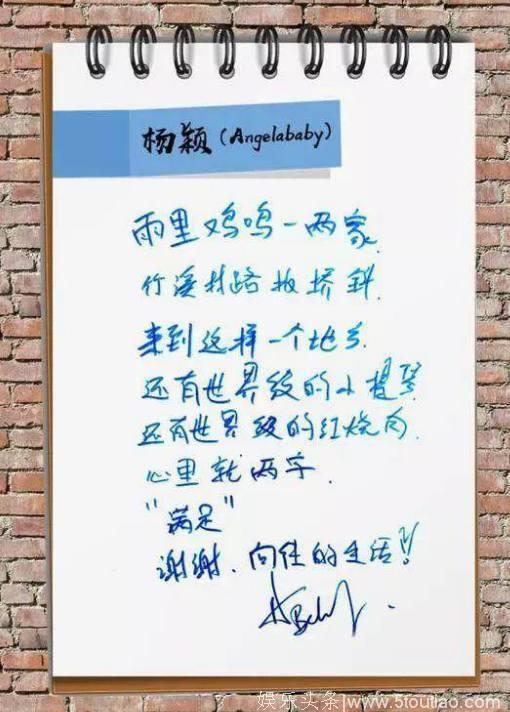 杨颖(Angelababy)
雨里鸡鸣一两家
竹溪村路板桥斜
来到这样一个地方
还有世界级的小提琴
还有世界级的红烧肉
心里就两字
“满足”
谢谢、向往的生活!!
娱乐头条/www.5toutiao.com